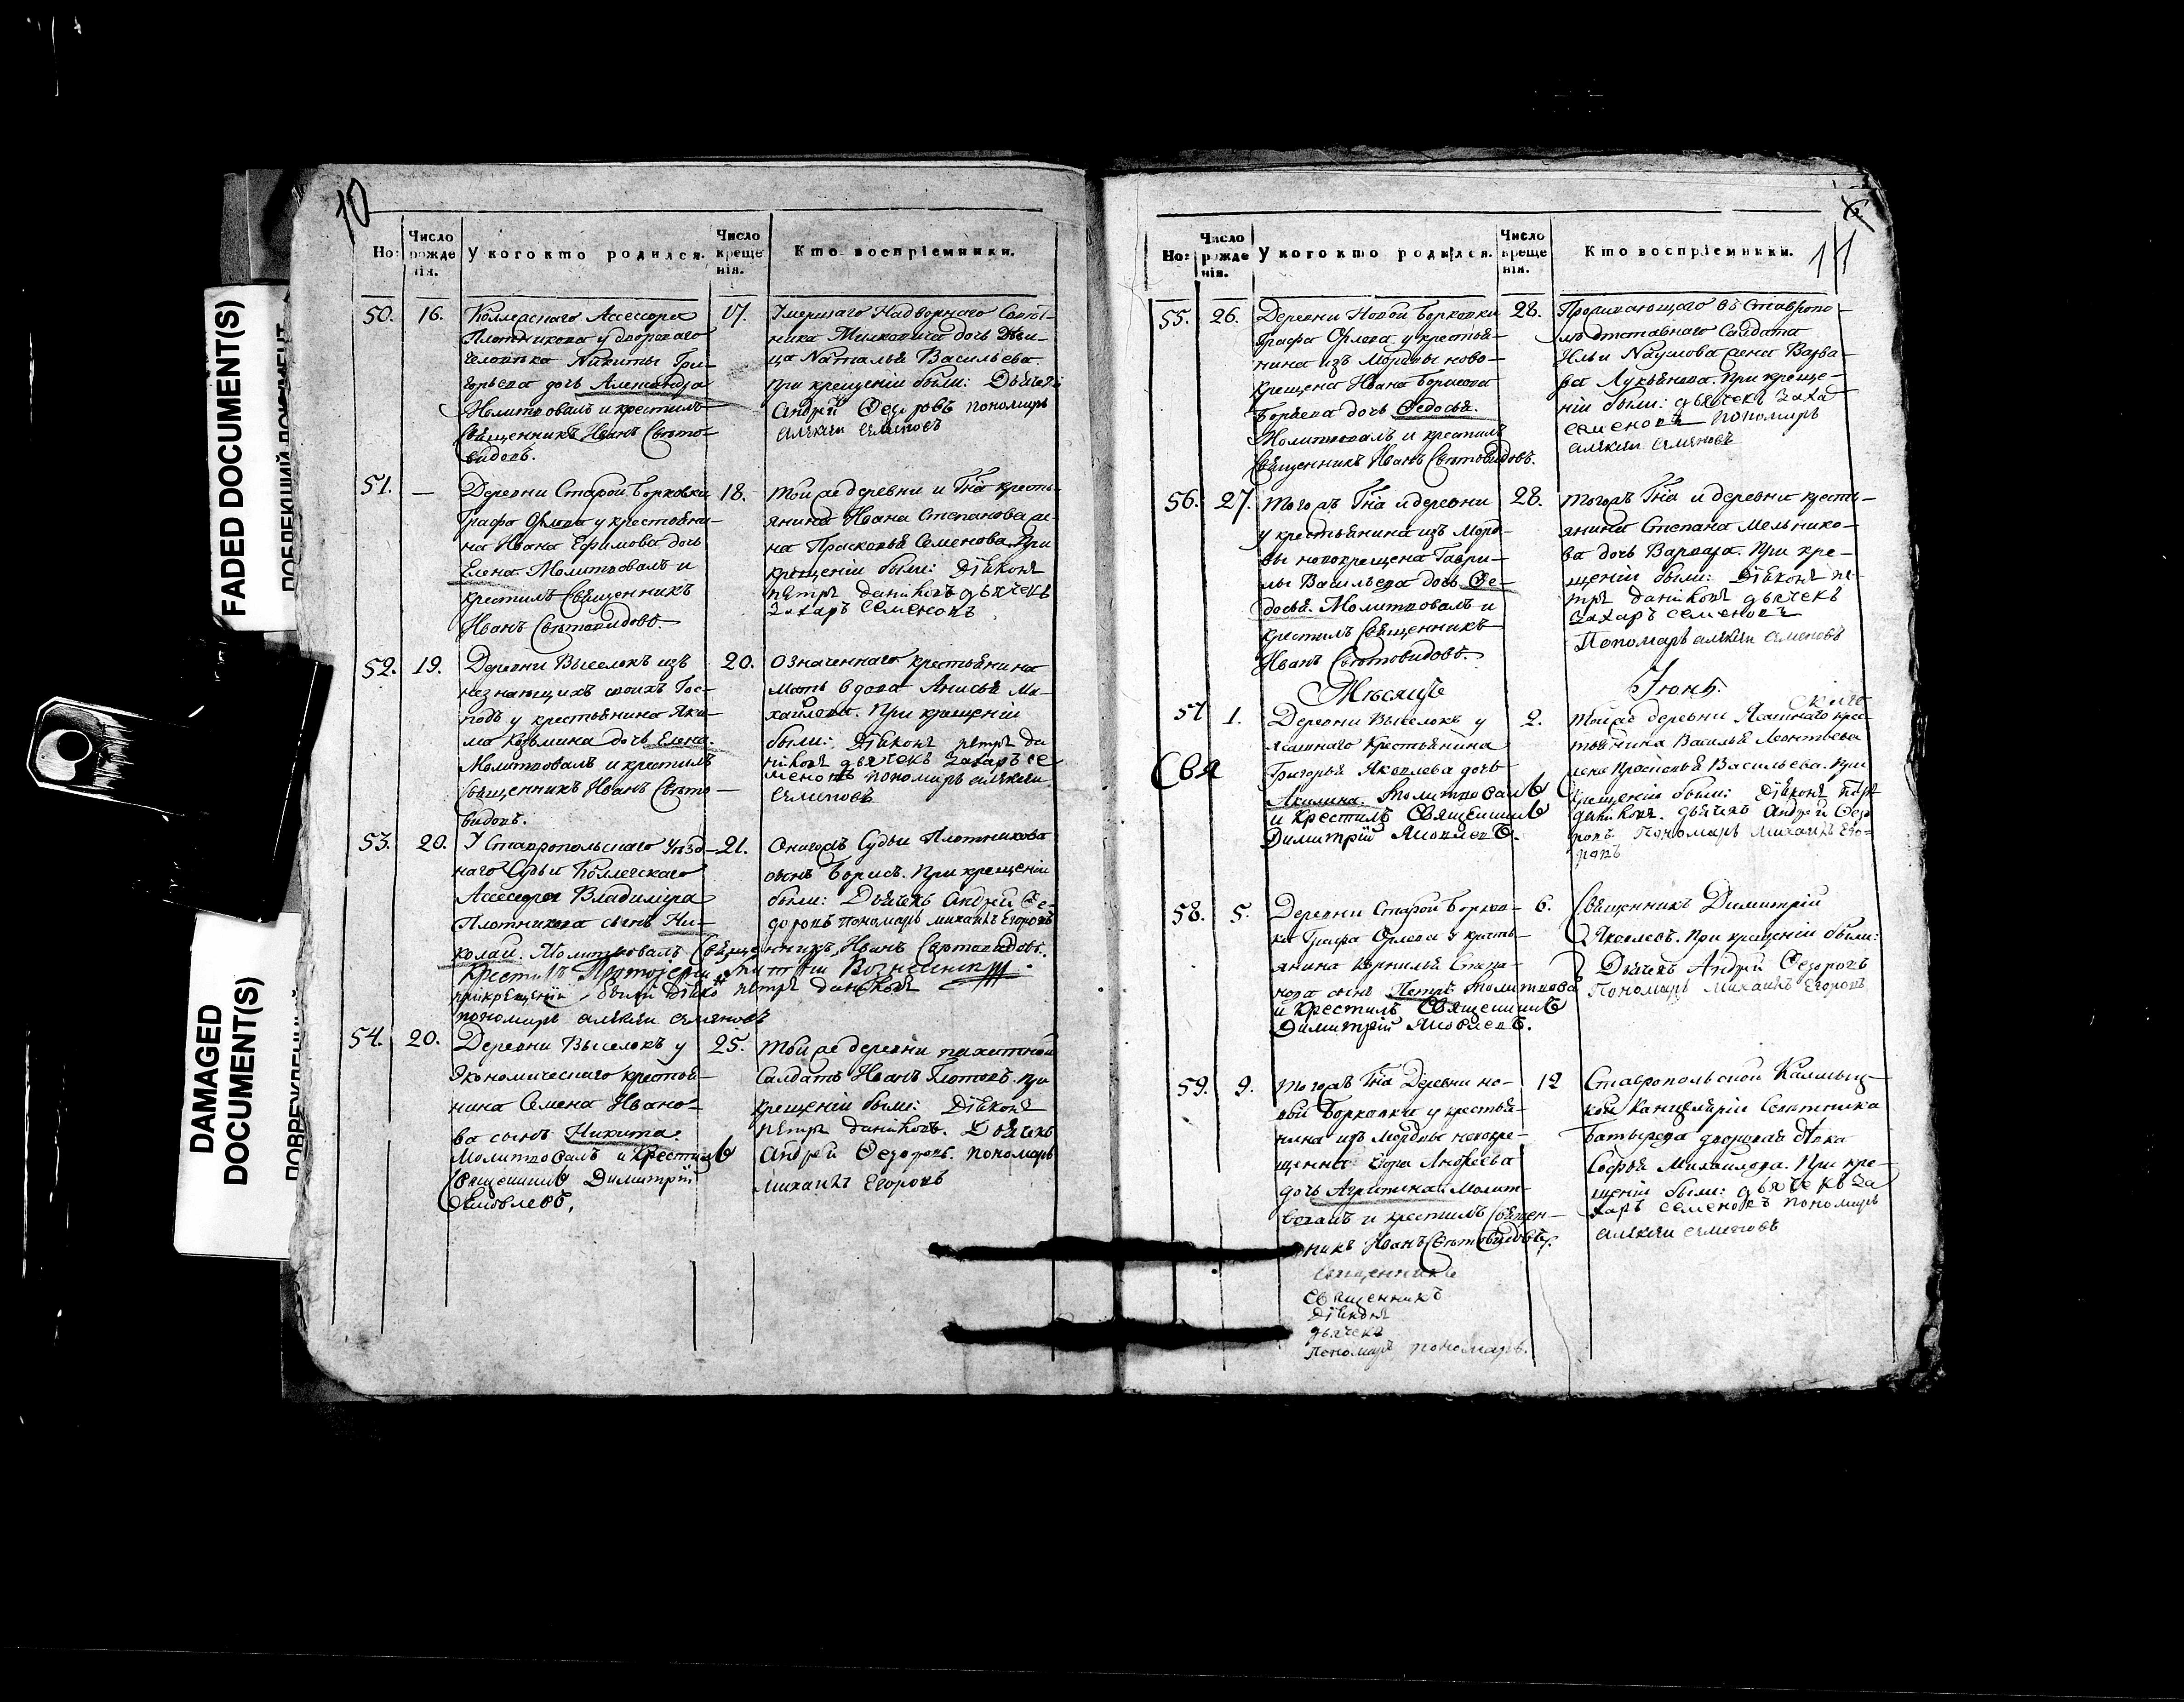 FADED DOCUMENT(S)
DAMAGED
DOCUMENT(S)
10
Но:
Число
рожде
нія.
У кого кто родился.
Число
креще
нія.
Кто воспріемники.
50. 16.
Коллерскаго Ассесора
Плотникова у двороваго
человѣка Никиты Гри-
горьева дочь Александра
Молитвовалъ и крестилъ
Священникъ Иванъ Свѣто-
видовъ.
17.
Умершаго Надворнаго Совѣт-
ника Мильковича дочь Дѣви-
ца Наталья Васильева
при крещеніи были: Дьячекъ
Андрей Федоровъ пономарь
алѣкѣи семеновъ
51. —
Деревни Старой Борковки
Графа Орлова у крестьяни-
на Ивана Ефимова дочь
Елена Молитвовалъ и
крестилъ Священникъ
Иванъ Свѣтовидовъ.
18.
Той же деревни и Гна кресть-
янина Ивана Степанова же-
на Прасковья Семенова. При
крещеніи были: Діаконъ
пѣтръ даниловъ дьячекъ
Захаръ Семеновъ
52. 19.
Деревни Выселокъ изъ
незнающихъ своихъ Гос-
подъ у крестьянина Яки-
ма Козьмина дочь Елена.
Молитвовалъ и крестилъ
Священникъ Иванъ Свѣто-
видовъ.
20.
Означеннаго крестьянина
мать вдова Анисья Ми-
хайлова. При крещеніи
были: Діаконъ пѣтръ да
ниловъ дьячекъ Захаръ се
меновъ пономарь алѣкѣи
семеновъ
53. 20.
У Ставропольскаго уѣзд-
наго Судьи Коллежскаго
Ассесора Владимира
Плотникова сынъ Ни-
колай. Молитвовалъ Священникъ Иванъ Свѣтовидовъ.
крестилъ Протоіерей
прикрещеніи были діаконъ пѣтръ даниловъ
пономарь алѣкѣи семеновъ
21.
Онагожъ Судьи Плотникова
сынъ Борисъ. При крещеніи
были: Дьячекъ Андрей Фе-
доровъ пономарь михаилъ Егоровъ
54. 20.
Деревни Выселокъ у
Экономическаго крестья-
нина Семена Ивано-
ва сынъ Никита.
Молитвовалъ и крестилъ
Священникъ Димитрій
Яковлевъ.
25.
Той же деревни пахатной
Салдатъ Иванъ при
крещеніи были: Діаконъ
пѣтръ даниловъ. Дьячекъ
Андрей Федоровъ. пономарь
михаилъ Егоровъ
6.
11
Но:
Число
рожде
нія.
У кого кто родился.
Число
креще
нія.
Кто воспріемники.
55. 26.
Деревни Новой Борковки
Графа Орлова у крестья-
нина изъ Мордвы ново-
крещена Ивана Борисова
дочь Федосья.
Молитвовалъ и крестилъ
Священникъ Иванъ Свѣтовидовъ.
28.
Проживающаго въ Ставропо-
лѣ отставнаго Салдата
Ильи Наумова жена Варва-
ра Лукьянова. При креще-
ніи были: дьячекъ Заха
семеновъ пономарь
алѣкѣи семеновъ
56. 27.
Тогожъ Гна и деревни
у крестьянина изъ Морд-
вы новокрещена Гаври-
лы Васильева дочь Фе-
досья. Молитвовалъ и
крестилъ Священникъ
Иванъ Свѣтовидовъ.
28.
Тогожъ Гна и деревни кресть-
янина Степана Мельнико-
ва дочь Варвара. При кре-
щеніи были: Діаконъ пе-
тръ даниловъ дьячекъ
Захаръ семеновъ
Пономарь алѣкѣи семеновъ
Мѣсяцъ Іюнь.
57 1.
Деревни Выселокъ у
яшашнаго Крестьянина
Григорья Яковлева дочь
Акилина. Молитвовалъ
и Крестилъ Священникъ
Димитрій Яковлевъ.
Свя
2.
Той же деревни Яшашнаго крес-
тьянина Василья Леонтьева
жена Прасковья Васильева. При
крещеніи были: Діаконъ пѣтръ
даниловъ. дьячекъ Андрей Федо
ровъ Пономарь Михаилъ Его-
ровъ
58. 5.
Деревни Старой Борков-
ки Графа Орлова у кресть-
янина Корнилья Степа-
нова сынъ Петръ Молитвова
и Крестилъ Священникъ
Димитрій Яковлевъ.
6.
Священникъ Димитрій
Яковлевъ. При крещеніи были:
Дьячекъ Андрей Федоровъ
Пономарь Михаилъ Егоровъ
59. 9.
Тогожъ Гна Деревни но-
вой Борковки у крестья-
нина изъ Мордвы новокре-
щенна Егора Андреева
дочь Агрипина. Молит-
вовалъ и крестилъ Священ-
никъ Иванъ Свѣтовидовъ.
12
Ставропольской Калмыц-
кой Канцеляріи Советника
Батырева дворовая дѣвка
Софья Михайлова. При кре-
щеніи были: дьячекъ За
харъ семеновъ пономарь
алѣкѣи семеновъ
Священникъ
Священникъ
Діаконъ
дьячекъ
Пономарь пономарь.